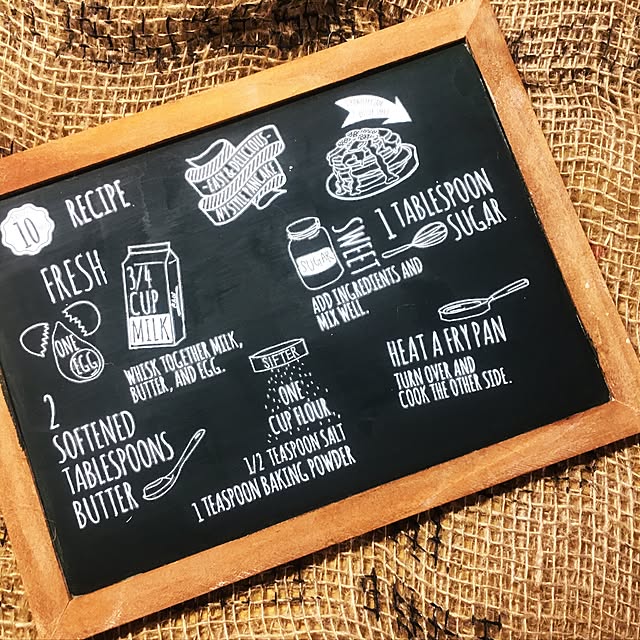 10
RECIPE
FAST & DELICIOUS
FRESH
3/4
CUP
MILK
ONE
EGG
WHISK TOGETHER MILK,
BUTTER, AND EGG.
2
SOFTENED
TABLESPOONS
BUTTER
SUGAR
SWEET
1 TABLESPOON
SUGAR
ADD INGREDIENTS AND
MIX WELL.
SIFTER
ONE
CUP FLOUR
1/2 TEASPOON SALT
1 TEASPOON BAKING POWDER
HEAT A FRY PAN
TURN OVER AND
COOK THE OTHER SIDE.